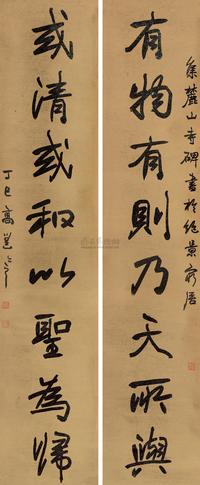 有物有則乃天所與
集麓山寺碑書於絕景窮居
或清或和以聖為歸
丁巳高邕